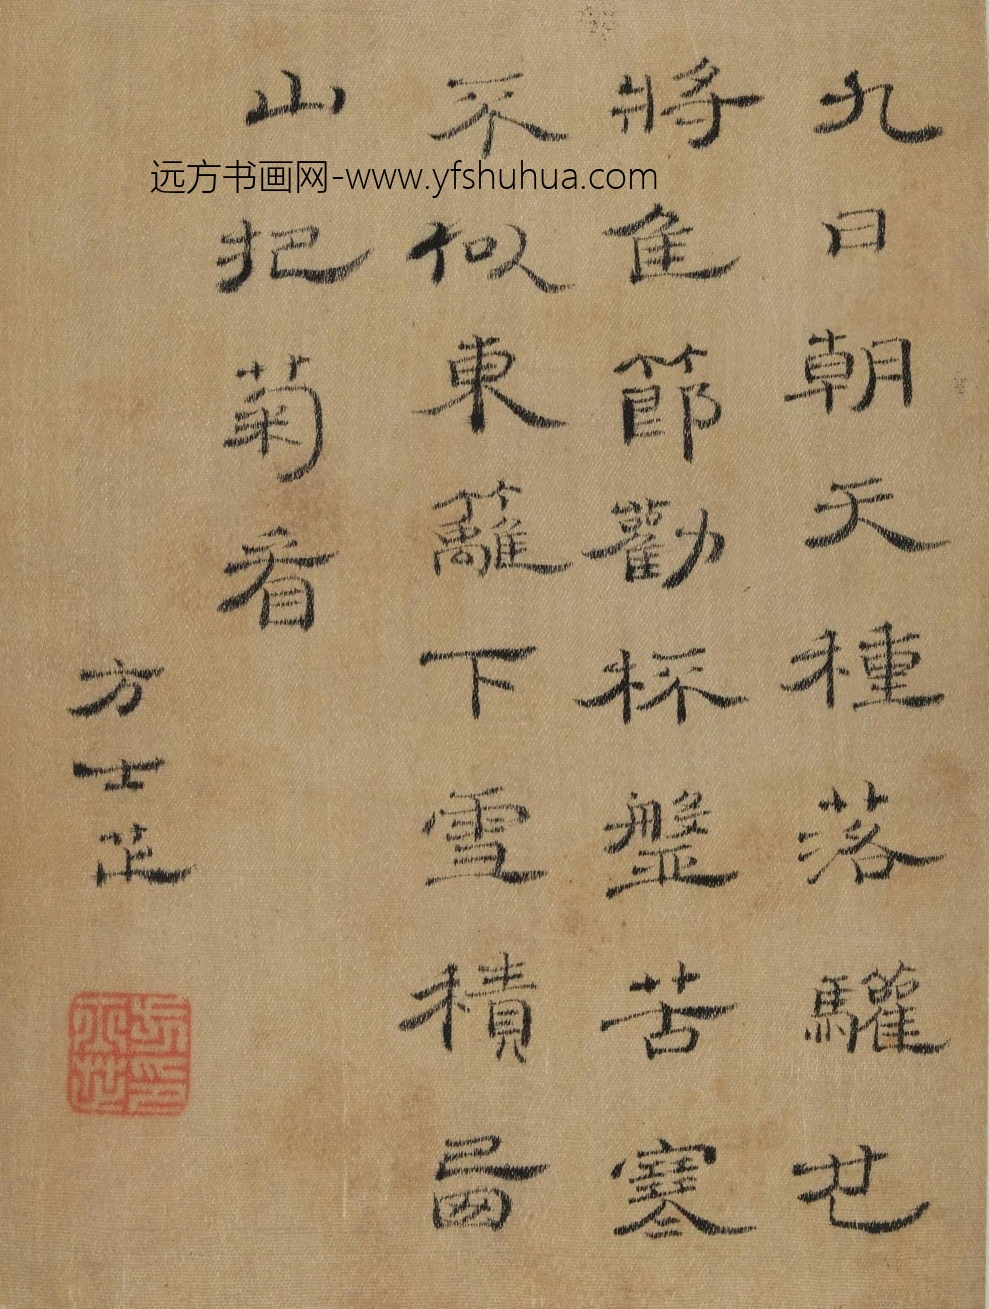 远方书画网-www.yfshuhua.com
九日朝天種落驩也
將佳節勸杯盤苦寒
不似東籬下雪積
山把菊看
方士